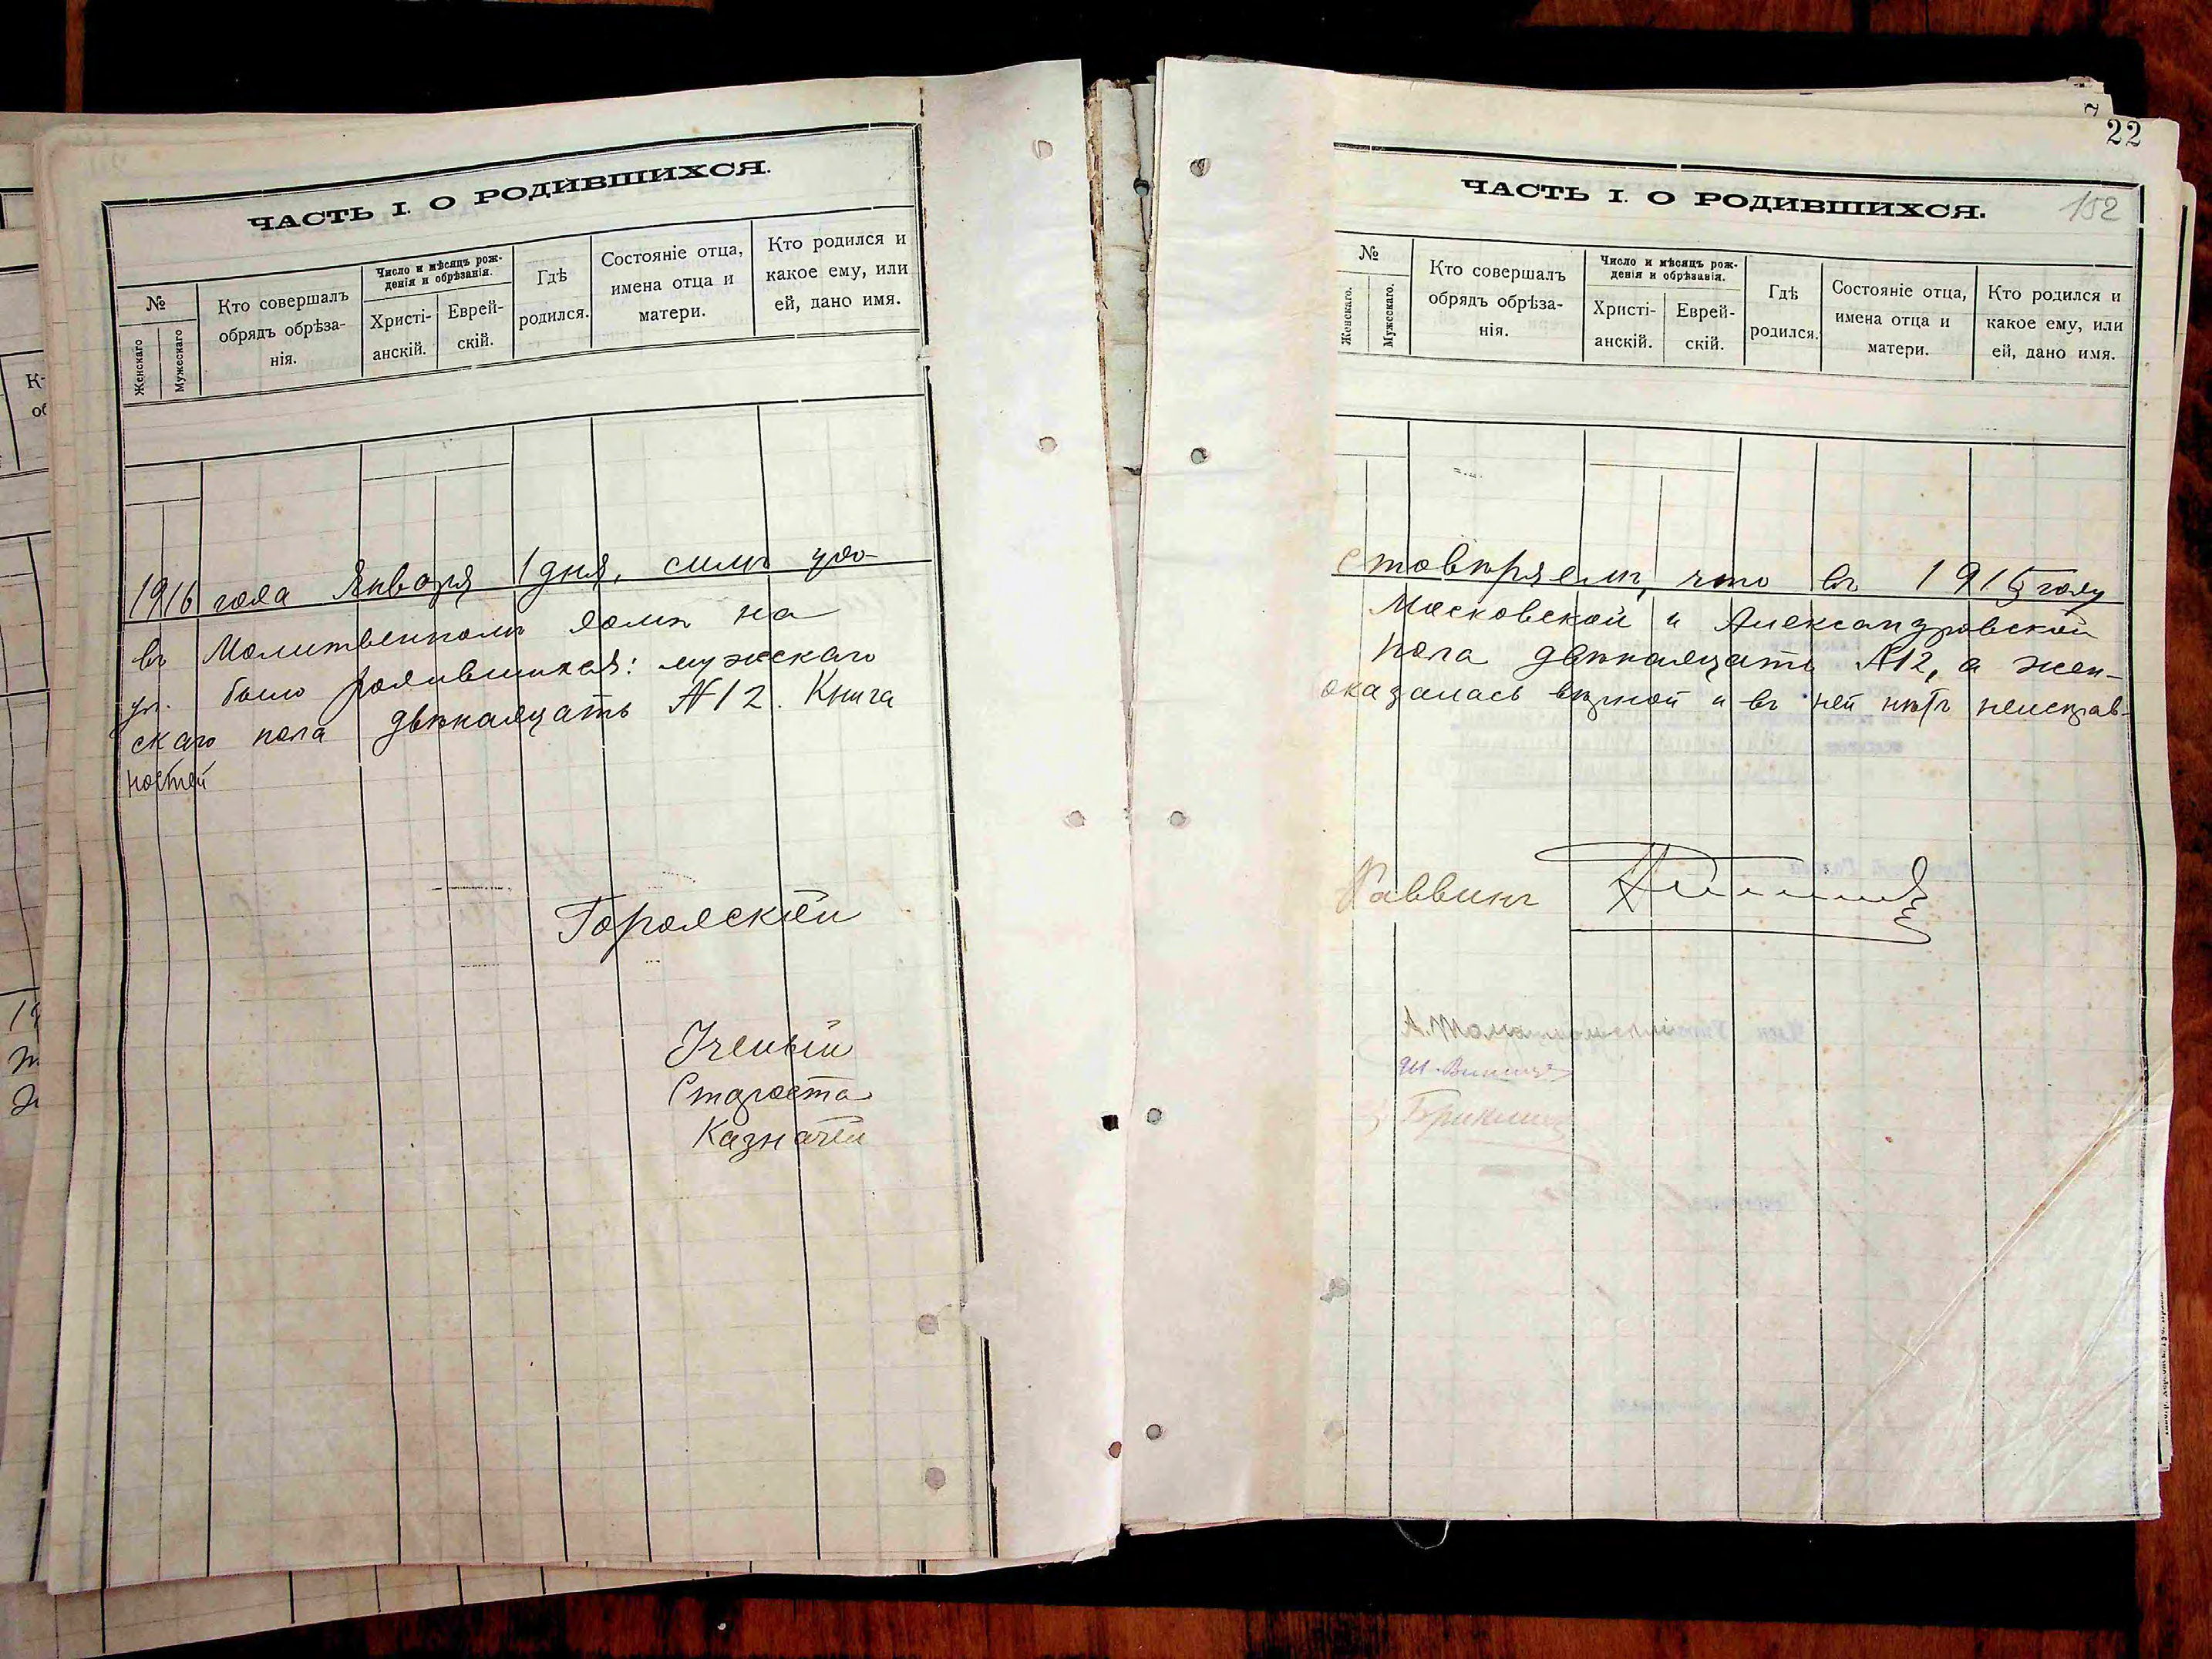 ЧАСТЬ I. О РОДИВШИХСЯ.
№
Женскаго
Мужескаго
Кто совершалъ
обрядъ обрѣза-
нія.
Число и мѣсяцъ рож-
денія и обрѣзанія.
Христі-
анскій.
Еврей-
скій.
Гдѣ
родился.
Состояніе отца,
имена отца и
матери.
Кто родился и
какое ему, или
ей, дано имя.
1916 года Января 1 дня, симъ удо-
въ Молитвенномъ домѣ на
ул. было родившихся: мужскаго
скаго пола двѣнадцать №12. Книга
ностей
Городской
Ученый
Староста
Казначей
22
152
ЧАСТЬ I. О РОДИВШИХСЯ.
№
Женскаго.
Мужескаго.
Кто совершалъ
обрядъ обрѣза-
нія.
Число и мѣсяцъ рож-
денія и обрѣзанія.
Христі-
анскій.
Еврей-
скій.
Гдѣ
родился.
Состояніе отца,
имена отца и
матери.
Кто родился и
какое ему, или
ей, дано имя.
стовѣряемъ, что въ 1915 году
Московской и Александровской
пола двѣнадцать №12, а жен-
оказалась вѣрной и въ ней нѣтъ неисправ-
Раввинъ